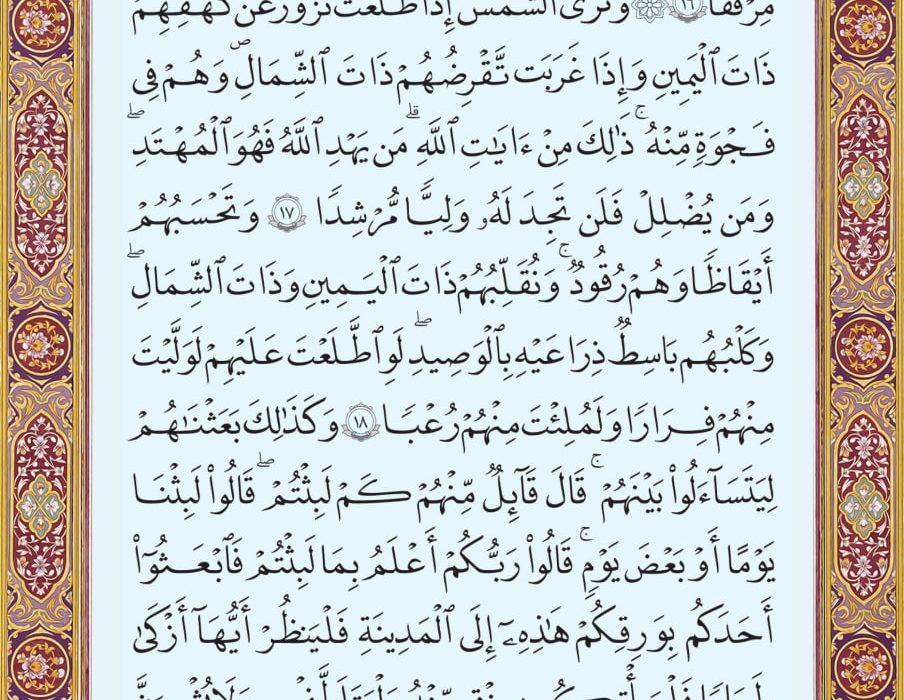 مِرْفَقًا ١٦ وَتَرَى ٱلشَّمْسَ إِذَا طَلَعَت تَّزَٰوَرُ عَن كَهْفِهِمْ
ذَاتَ ٱلْيَمِينِ وَإِذَا غَرَبَت تَّقْرِضُهُمْ ذَاتَ ٱلشِّمَالِ وَهُمْ فِى
فَجْوَةٍ مِّنْهُ ۚ ذَٰلِكَ مِنْ ءَايَٰتِ ٱللَّهِ ۗ مَن يَهْدِ ٱللَّهُ فَهُوَ ٱلْمُهْتَدِ ۖ
وَمَن يُضْلِلْ فَلَن تَجِدَ لَهُۥ وَلِيًّا مُّرْشِدًا ١٧ وَتَحْسَبُهُمْ
أَيْقَاظًا وَهُمْ رُقُودٌ ۚ وَنُقَلِّبُهُمْ ذَاتَ ٱلْيَمِينِ وَذَاتَ ٱلشِّمَالِ ۖ
وَكَلْبُهُم بَٰسِطٌ ذِرَاعَيْهِ بِٱلْوَصِيدِ ۚ لَوِ ٱطَّلَعْتَ عَلَيْهِمْ لَوَلَّيْتَ
مِنْهُمْ فِرَارًا وَلَمُلِئْتَ مِنْهُمْ رُعْبًا ١٨ وَكَذَٰلِكَ بَعَثْنَٰهُمْ
لِيَتَسَآءَلُوا۟ بَيْنَهُمْ ۚ قَالَ قَآئِلٌ مِّنْهُمْ كَمْ لَبِثْتُمْ ۖ قَالُوا۟ لَبِثْنَا
يَوْمًا أَوْ بَعْضَ يَوْمٍ ۚ قَالُوا۟ رَبُّكُمْ أَعْلَمُ بِمَا لَبِثْتُمْ فَٱبْعَثُوٓا۟
أَحَدَكُم بِوَرِقِكُمْ هَٰذِهِۦٓ إِلَى ٱلْمَدِينَةِ فَلْيَنظُرْ أَيُّهَآ أَزْكَىٰ